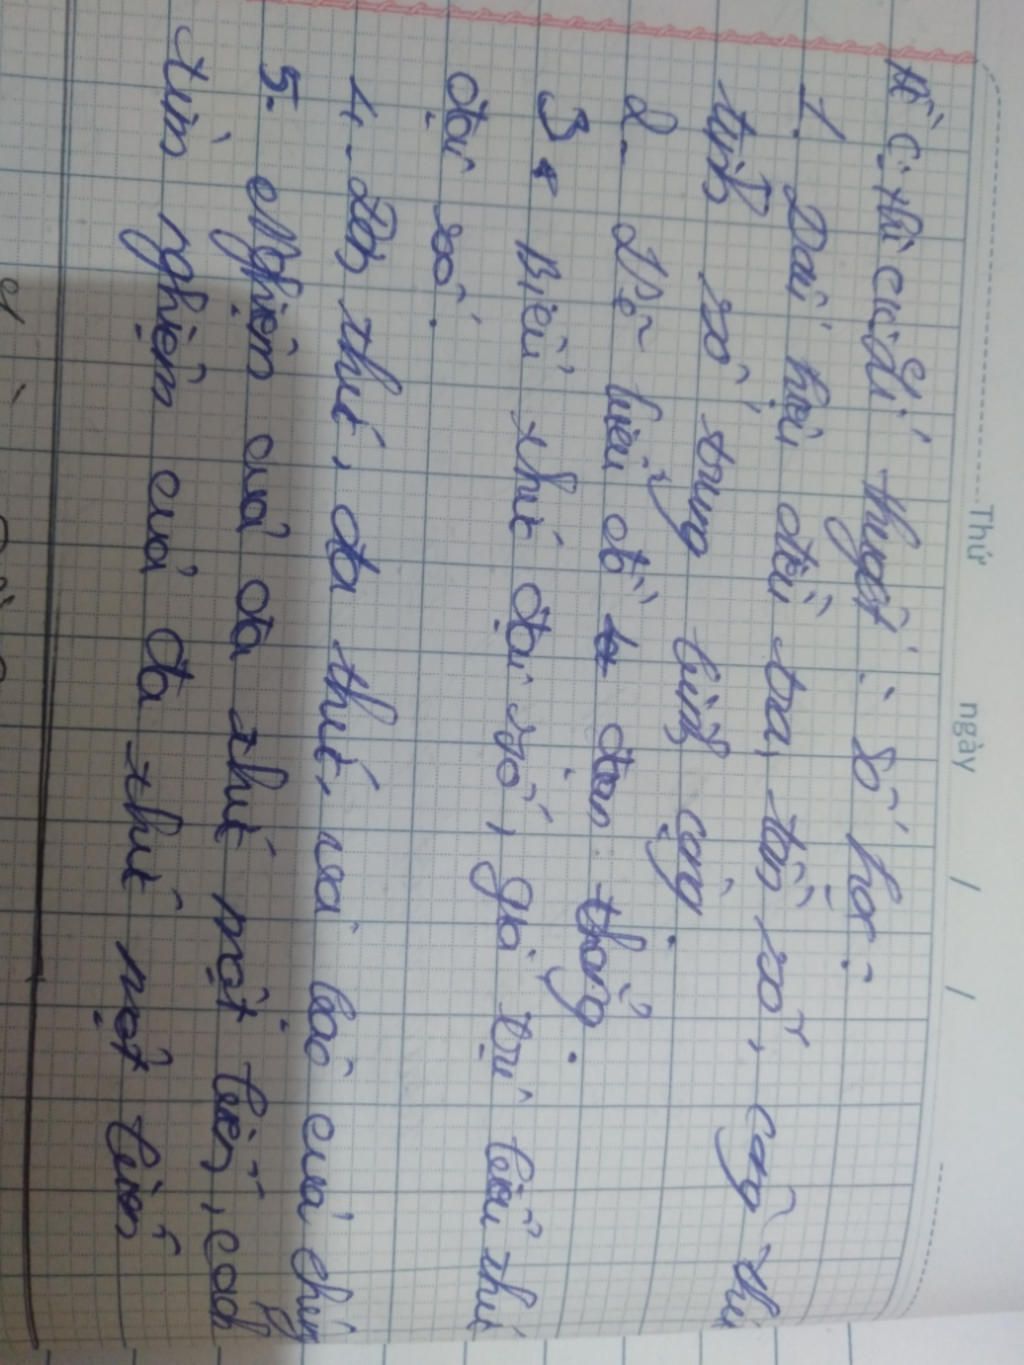 Thứ ngày / /
Đề c thi cuối lí thuyết : Số học :
1. Dấu hiệu điều tra, tần số, công thức
tính số trung bình cộng.
2. Vẽ biểu đồ đoạn thẳng.
3. Biểu thức đại số, giá trị biểu thức
đại số.
4. Đơn thức, đa thức, và bậc của chúng
5. Nghiệm của đa thức một biến, cách
tìm nghiệm của đa thức một biến